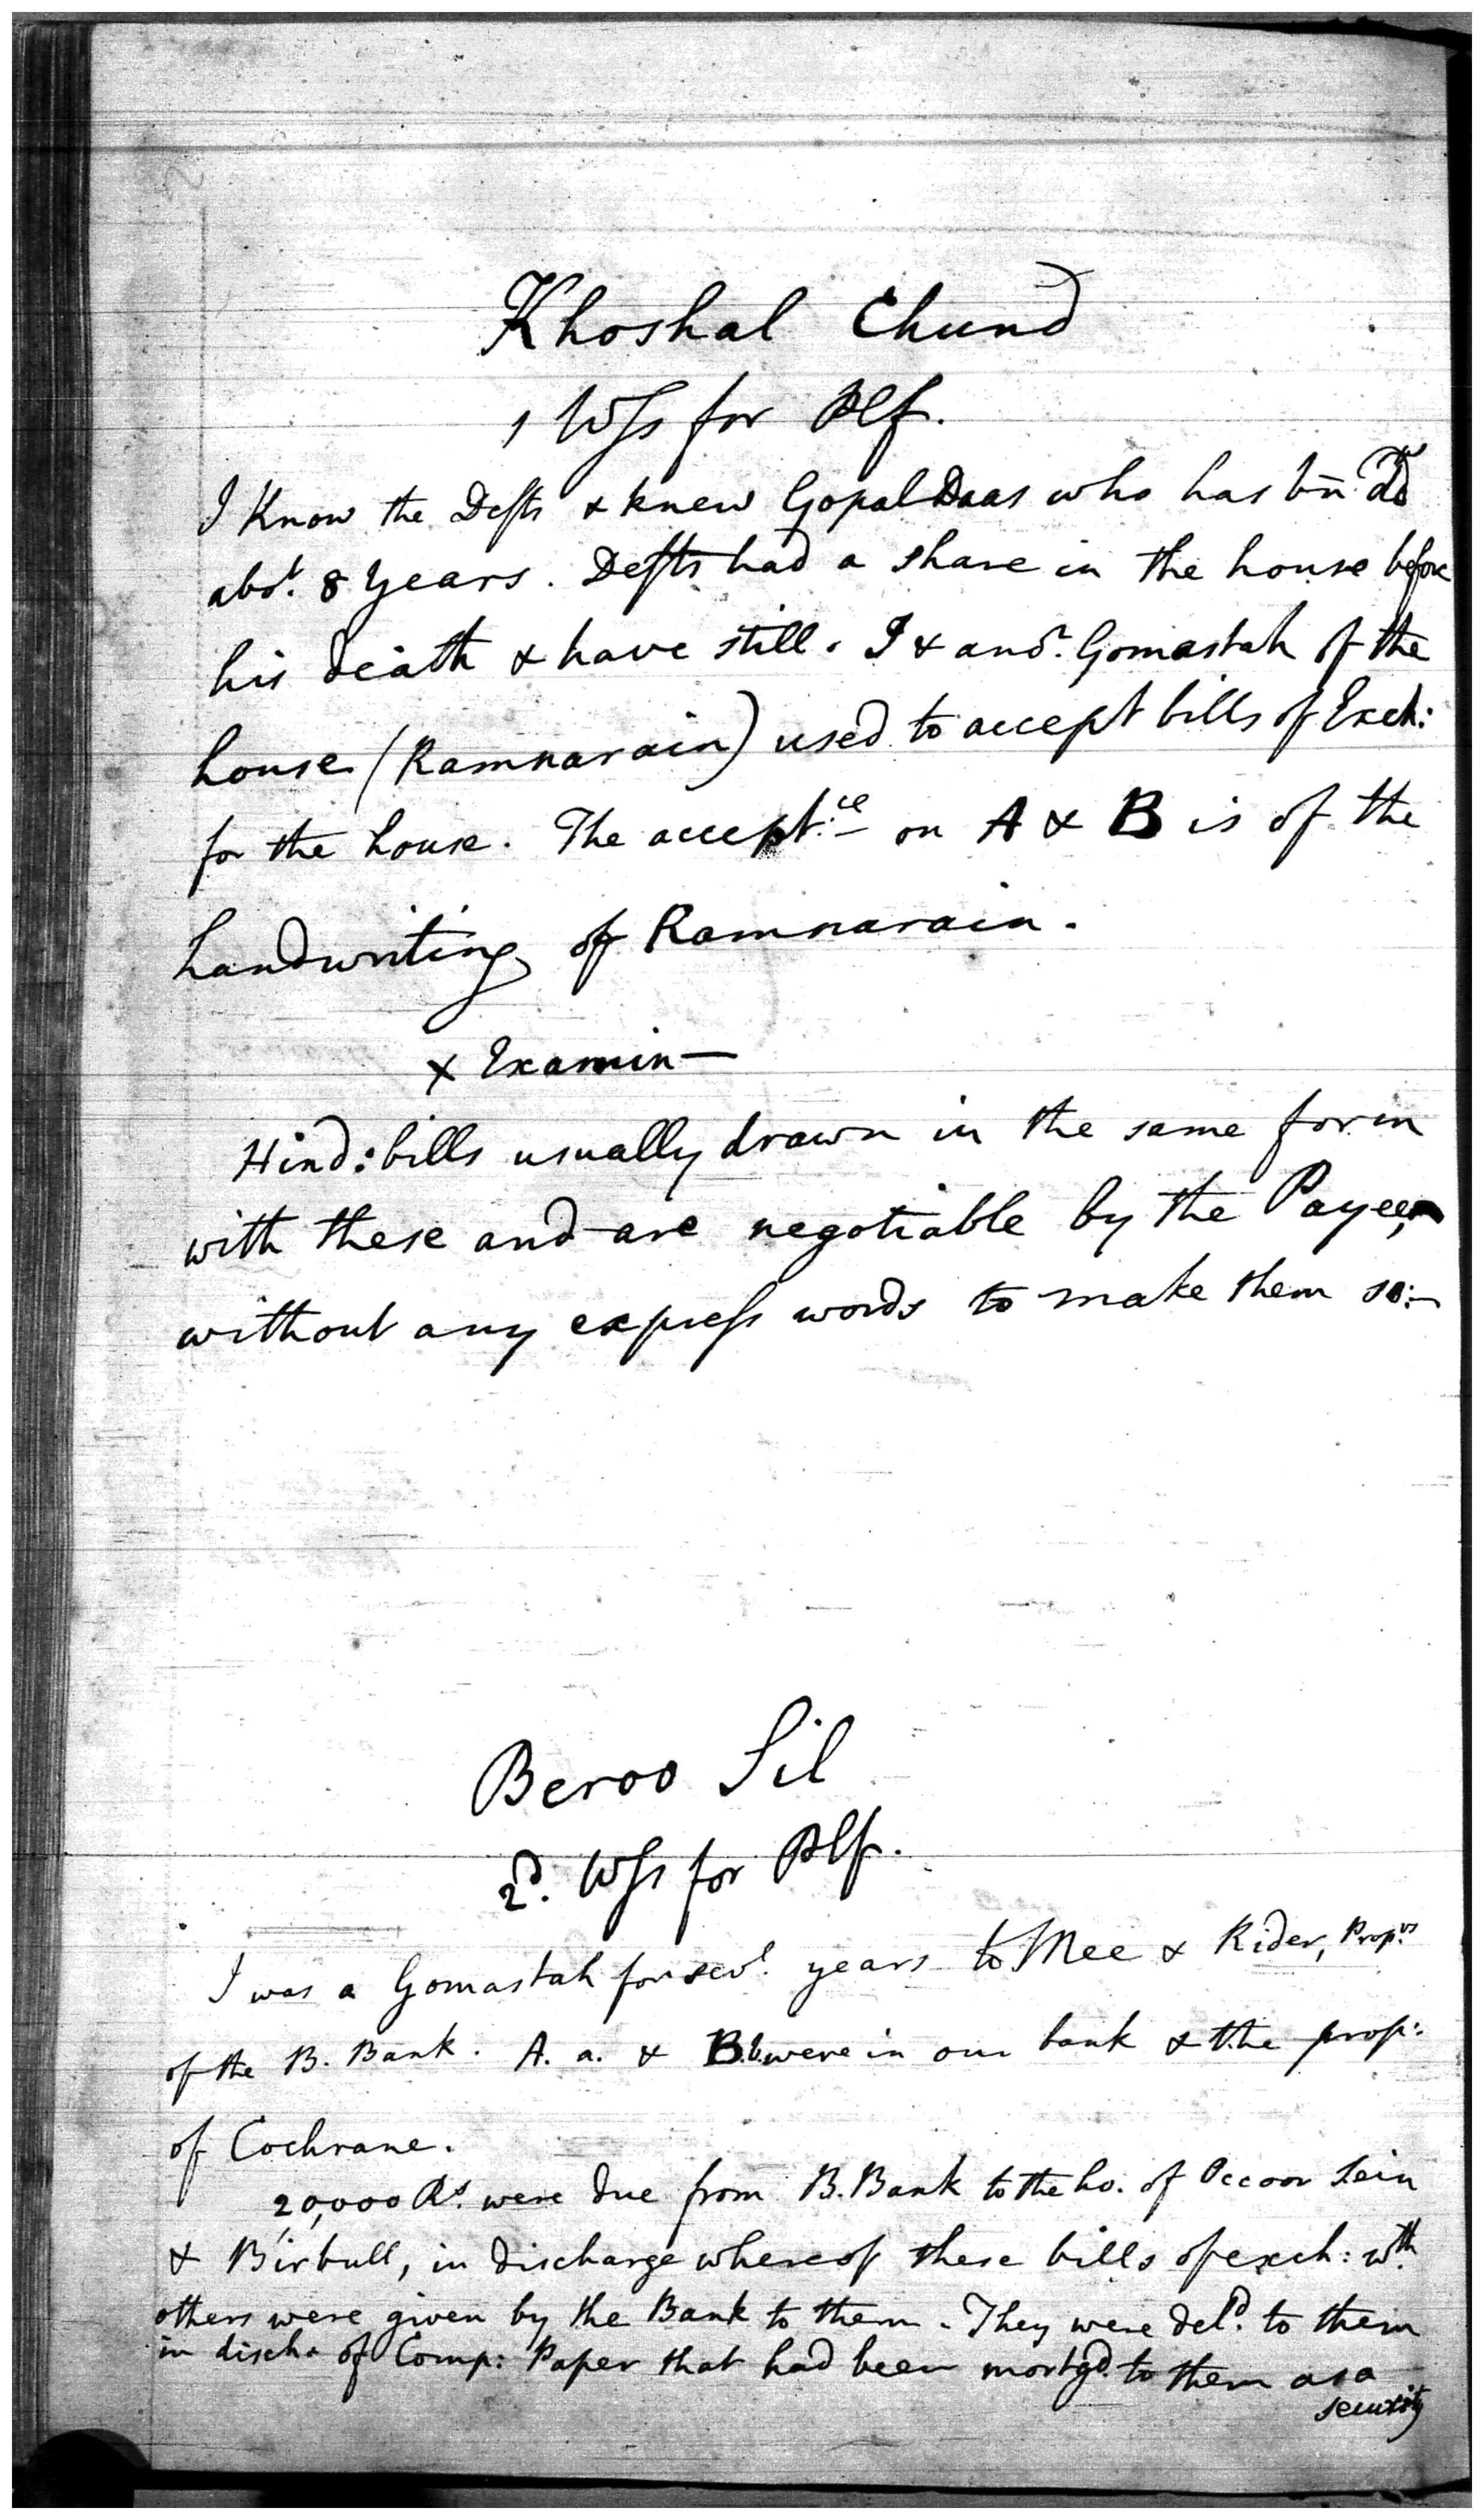 Khoshal Chund
1 Wss for Plf.
I know the Defts & knew Gopal Daas who has bn
abot. 8 Years. Defts had a share in the house before
his death & have still. I & anor. Gomastah of the
house (Ramnarain) used to accept bills of Exch:
for the house. The accept:ce on A & B is of the
handwriting of Ramnarain.
x Examin—
Hind: bills usually drawn in the same form
with these and are negotiable by the Payee,
without any express words to make them so:—
Beroo Sil
2d. Wss for Plf.
I was a Gomastah for sevl. years to Mee & Rider, Prop:rs
of the B. Bank. A. a. & B.b. were in our bank & the prop:
of Cochrane.
20,000 Rs. were due from B. Bank to the ho. of Occoor Sein
& Birbull, in discharge whereof these bills of exch: wth.
others were given by the Bank to them. They were deld. to them
in disch: of Comp: Paper that had been mortgd. to them as a
security